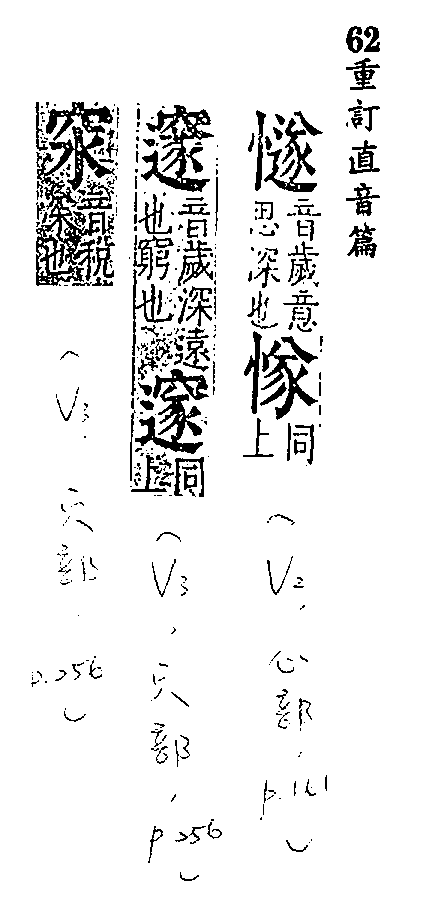 62重訂直音篇
音歲意
思深也
同
上
(V2, 心部,
邃
音歲深遠
也窮也
同
上
(V3, 穴部, p256)
音稅
深也
(V3. 穴部. p.256)